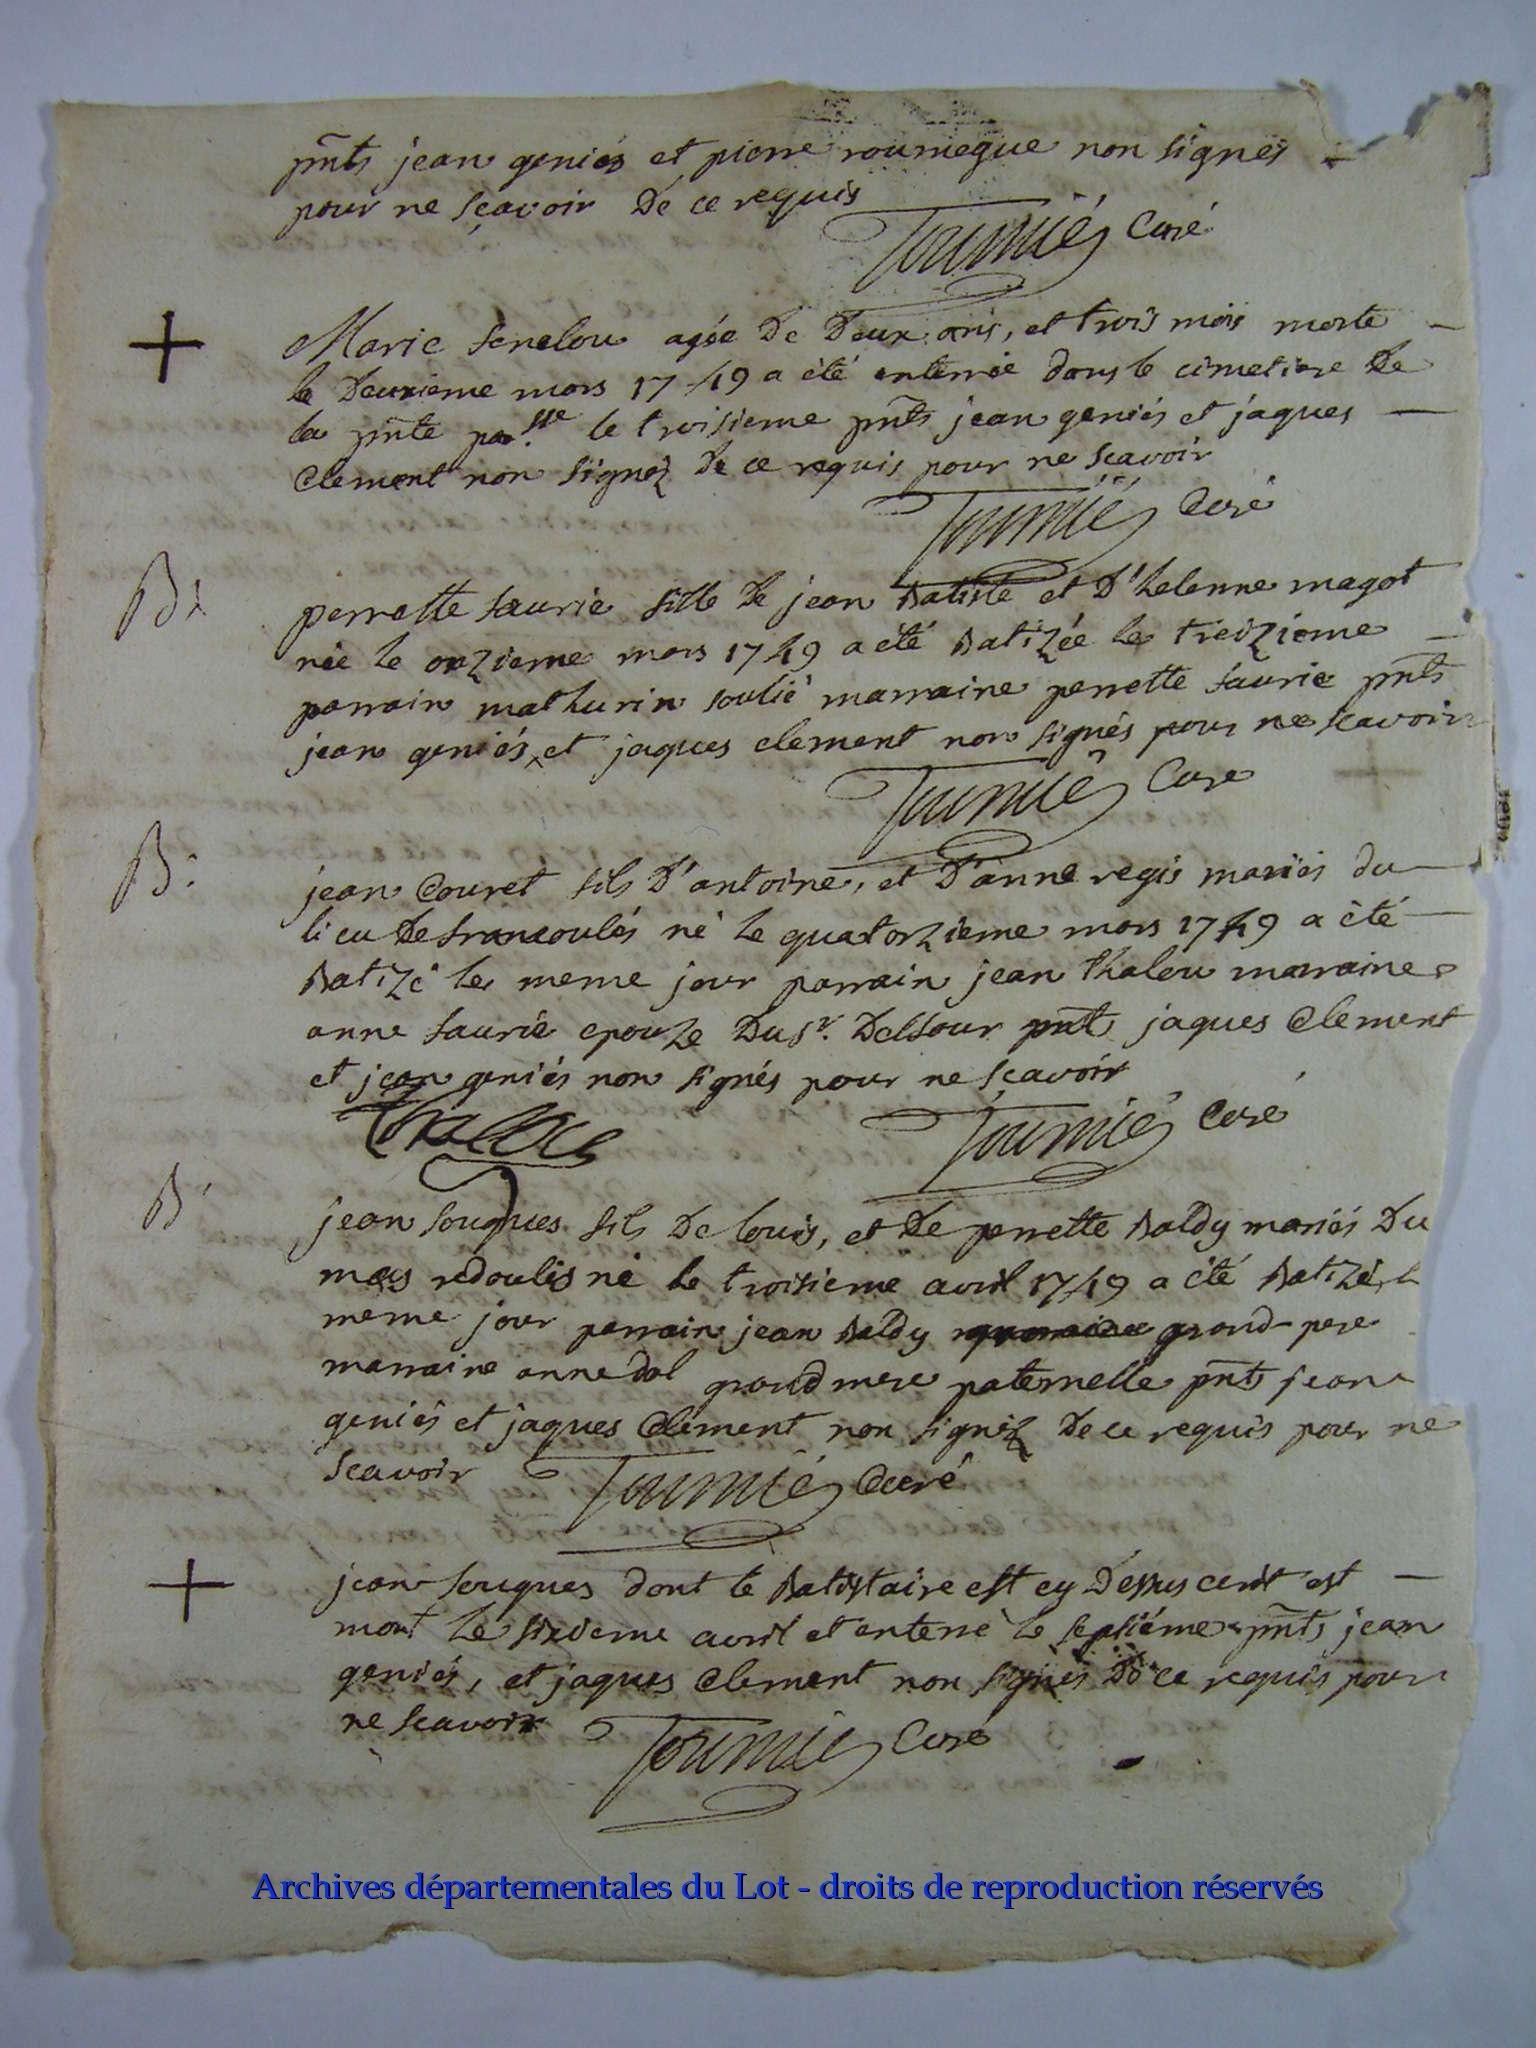 pnts jean geniés et pierre roumegue non signés
pour ne sçavoir de ce requis
Tournié Curé
+ Marie senelou agée de deux ans, et trois mois morte
le deuxieme mars 1749 a été enterrée dans le cimetiere de
la pnte parsse le troisieme pnts jean geniés et jaques
Clement non signez de ce requis pour ne scavoir
Tournié Curé
B: perrette saurie fille de jean batiste et d'helenne magot
née le onzieme mars 1749 a été batizée le treizieme
parrain mathurin soulié marraine perrette saurie pnts
jean geniés, et jaques clement non signés pour ne scavoir
Tournié Cure
B: jean Couret fils d'antoine, et d'anne regis mariés du
lieu de francoulés né le quatorzieme mars 1749 a été
batizé le meme jour parrain jean thalou marraine
anne saurie epouze du sr. delsour pnts jaques Clement
et jean geniés non signés pour ne sçavoir
Thalou
Tournié Curé
B jean souques fils de louis, et de perrette baldy mariés du
mas redoulis né le troisieme avril 1749 a été batizé, le
meme jour parrain jean baldy grand-pere
marraine anne dol grand mere paternelle pnts jean
geniés et jaques Clement non signez de ce requis pour ne
scavoir Tournié Curé
+ jean souques dont le batistaire est cy dessus ecrit est
mort le sixieme avril et enterré le septiéme pnts jean
geniés, et jaques Clement non signés de ce requis pour
ne scavoir Tournié Curé
Archives départementales du Lot - droits de reproduction réservés